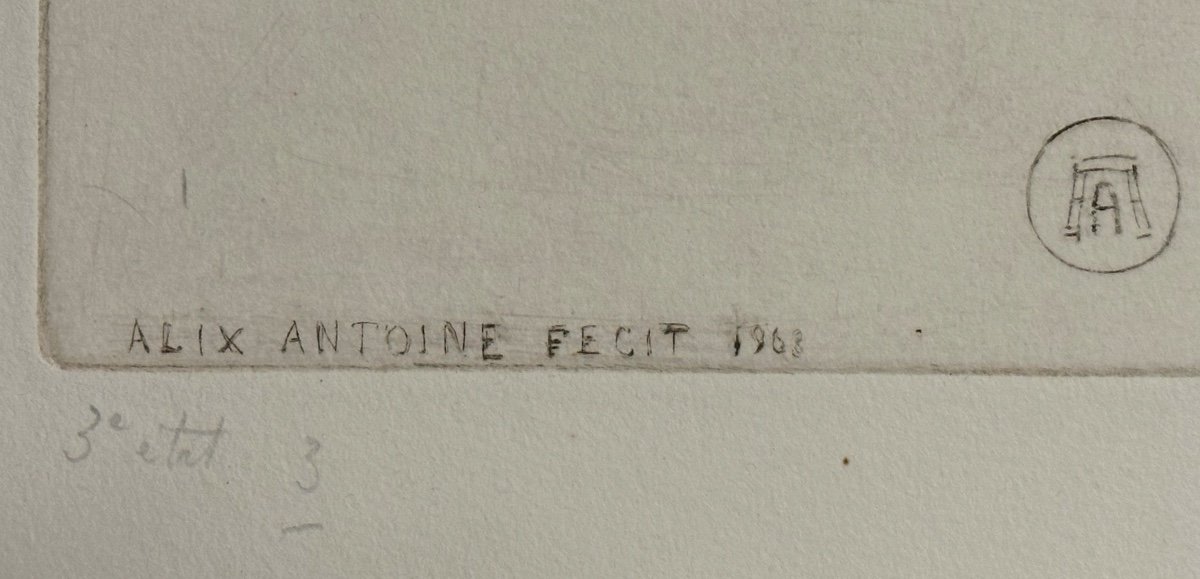 A
ALIX ANTOINE FECIT 1963
3e etat 3